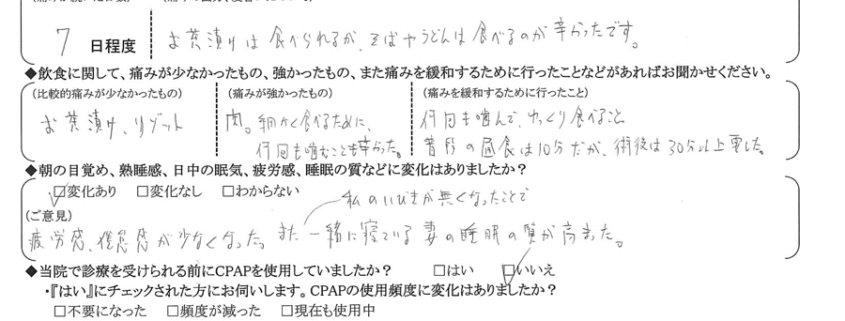 7 日程度 お茶漬けは食べられるが、そばやうどんは食べるのが辛かったです。
◆飲食に関して、痛みが少なかったもの、強かったもの、また痛みを緩和するために行ったことなどがあればお聞かせください。
(比較的痛みが少なかったもの) (痛みが強かったもの) (痛みを緩和するために行ったこと)
お茶漬け、リゾット 肉。細かく食べるために、 何回も噛んで、ゆっくり食べること
何回も噛むことも辛かった。 普段の昼食は10分だが、術後は30分以上要した。
◆朝の目覚め、熟睡感、日中の眠気、疲労感、睡眠の質などに変化はありましたか?
☑変化あり □変化なし □わからない
私のいびきが無くなったことで
(ご意見)
疲労感、倦怠感が少なくなった。また一緒に寝ている妻の睡眠の質が高まった。
◆当院で診療を受けられる前にCPAPを使用していましたか? □はい ☑いいえ
・『はい』にチェックされた方にお伺いします。CPAPの使用頻度に変化はありましたか?
□不要になった □頻度が減った □現在も使用中